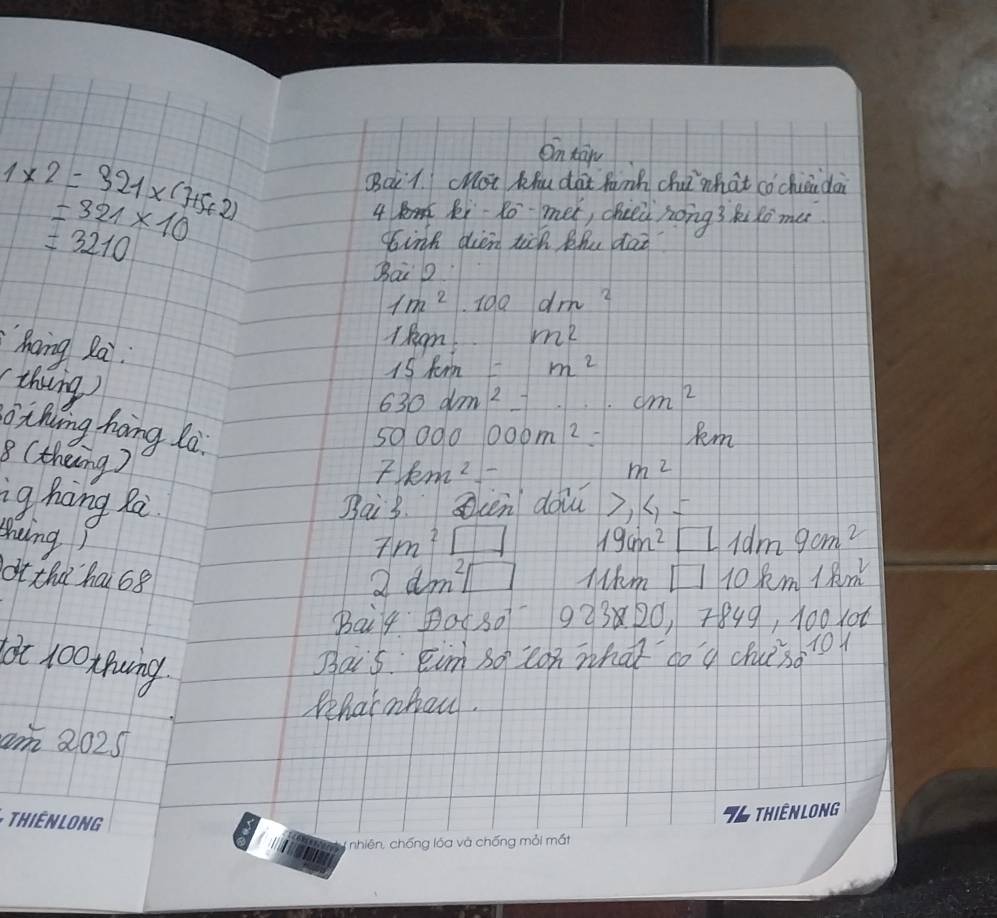 1 x 2 = 321 x (7+5+2)
= 321 x 10
= 3210
hàng là:
(thùng)
số thùng hàng là:
8 (thùng)
ng hàng là
thùng)
ớt thứ hai 68
tốt 100 thùng.
am 2025
THIÊN LONG
Ôn tập
Bài 1. Một khu đất hình chữ nhật có chiều dài
4 ki-lô-mét, chiều rộng 3 ki lô mét.
Tính diện tích khu đất
Bài 2:
1m² . 100 dm²
1km . . m²
15 km = m²
630 dm² = . . . cm²
50 000 000m² = km
7km² = m²
Bài 3. Điền dấu >, <, =
7m² □ 19cm² □ 1dm 9cm²
2 dm² □ 11km □ 10km 1km²
Bài 4: Đọc số 923820, 7849, 100 101
101
Bài 5: Tìm số lớn nhất có 4 chữ số
khác nhau.
THIÊN LONG
nhiên, chống lóa và chống mỏi mắt